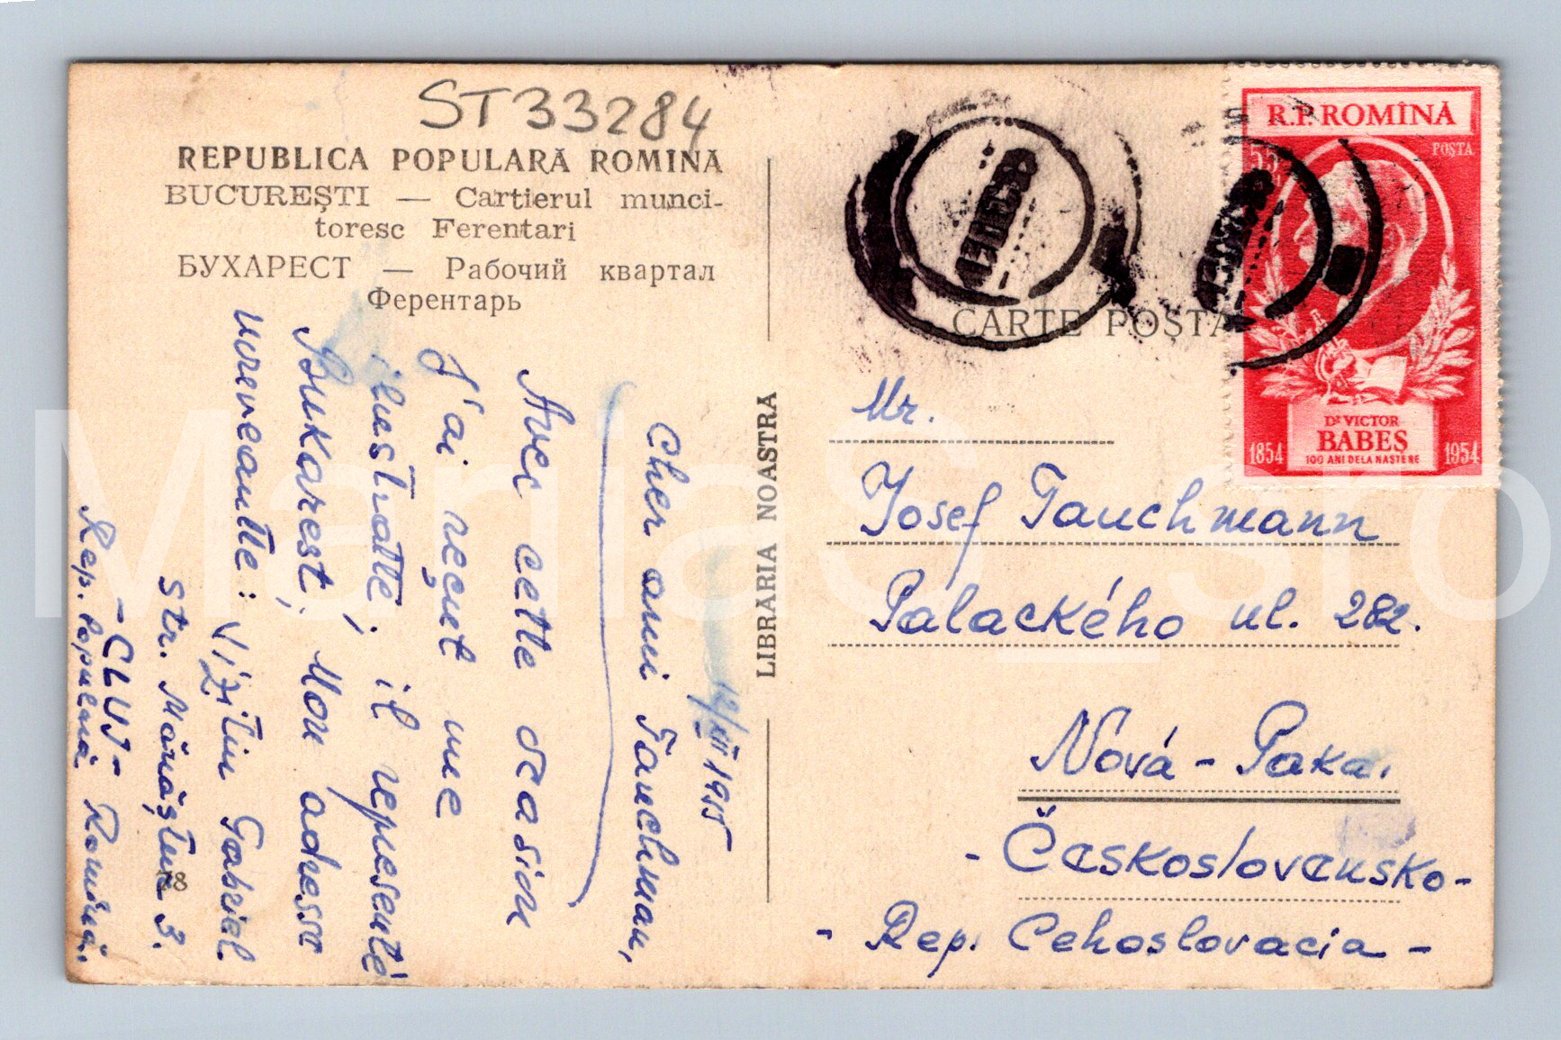 ST33284
REPUBLICA POPULARĂ ROMÎNĂ
BUCUREŞTI — Cartierul munci-
toresc Ferentari
БУХАРЕСТ — Рабочий квартал
Ферентарь
12/III 1955
Cher ami Tauchman,
Avec cette ocasion
J'ai reçut une
ilustratté, il representé
Bukarest, Mon adresse
noreveautte: Vizitiu Gabriel
str. Mănăştur 3.
- CLUJ -
Rep. Populară Romînă.
78
LIBRĂRIA NOASTRĂ
CARTE POŞTA
R.P. ROMÎNĂ
55
POSTA
Dr VICTOR
BABEŞ
100 ANI DE LA NAŞTERE
1854
1954
Mr.
Josef Tauchmann
Palackého ul. 282.
Nová - Paka.
- Československo -
- Rep. Cehoslovacia -
MariaS_slo